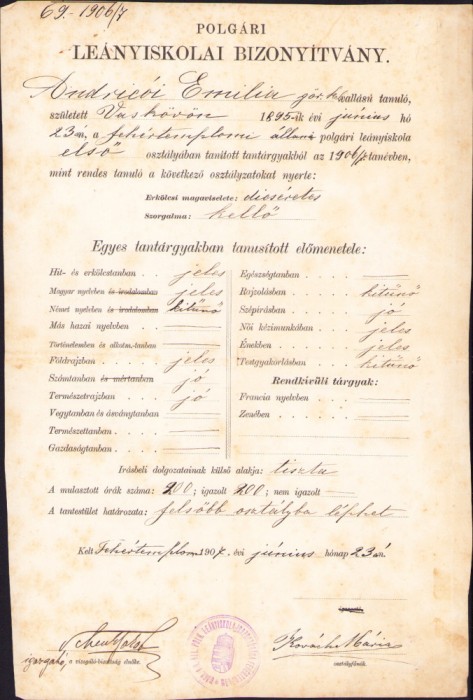 69-1906/7
POLGÁRI
LEÁNYISKOLAI BIZONYÍTVÁNY.
Andricói Emilia gör. k. vallású tanuló,
született Vaskövön 1895-ik évi június hó
23-án, a fehértemplomi állami polgári leányiskola
első osztályában tanított tantárgyakból az 1906/7 tanévben,
mint rendes tanuló a következő osztályzatokat nyerte:
Erkölcsi magaviselete: dicséretes
Szorgalma: kellő
Egyes tantárgyakban tanusított előmenetele:
Hit- és erkölcstanban . . . jeles
Magyar nyelvben és irodalomban jeles
Német nyelvben és irodalomban kitünő
Más hazai nyelvben . . .
Történelemben és alkotm.-tanban
Földrajzban . . . . jeles
Számtanban és mértanban jó
Természetrajzban . . . jó
Vegytanban és ásványtanban
Természettanban . . .
Gazdaságtanban . . .
Egészségtanban . . .
Rajzolásban . . . . kitünő
Szépírásban . . . . jó
Női kézimunkában . . jeles
Énekben . . . . jeles
Testgyakorlásban . . . kitünő
Rendkivüli tárgyak:
Francia nyelvben . . .
Zenében . . . .
Irásbeli dolgozatainak külső alakja: tiszta
A mulasztott órák száma: 200; igazolt 200; nem igazolt
A tantestület határozata: felsőbb osztályba léphet
Kelt Fehértemplom 1907. évi június hónap 23-án.
igazgató, a vizsgáló-bizottság elnöke.
Kovách Mária
osztályfőnök.